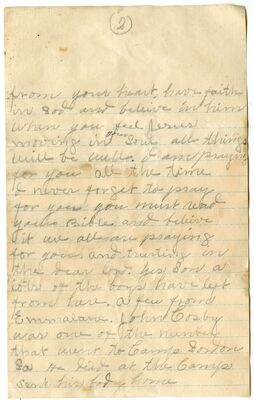 (2)
from your heart, have faith
in God and beleive in him
when you feel Jesus
moving in your Soul all things
will be well. I am praying
for you all the time
I never forget to pray
for you you must read
your Bible and believe
it we all are praying
for you and trusting in
the dear Lord. yes Son a
lots of the boys have left
from here. a few from
Emmalane. John Cosby
was one of the number
that went to Camp Gordon
Ga He died at the Camp
sent his body home